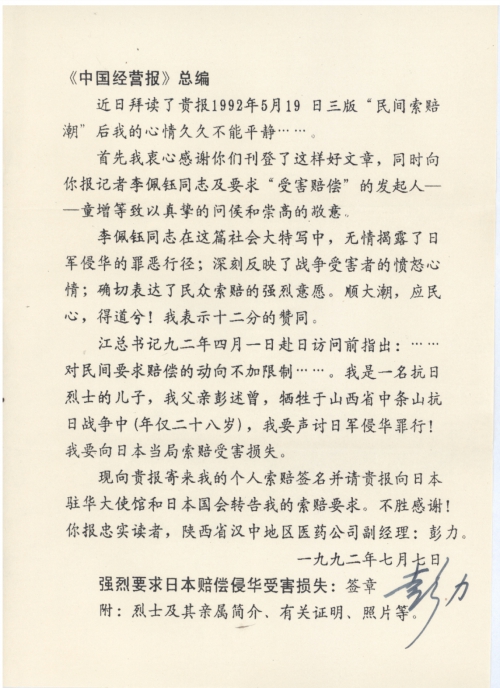 《中国经营报》总编
近日拜读了贵报1992年5月19 日三版“民间索赔
潮”后我的心情久久不能平静……。
首先我衷心感谢你们刊登了这样好文章，同时向
你报记者李佩钰同志及要求“受害赔偿”的发起人—
—童增等致以真挚的问侯和崇高的敬意。
李佩钰同志在这篇社会大特写中，无情揭露了日
军侵华的罪恶行径；深刻反映了战争受害者的愤怒心
情；确切表达了民众索赔的强烈意愿。顺大潮，应民
心，得道兮！我表示十二分的赞同。
江总书记九二年四月一日赴日访问前指出：……
对民间要求赔偿的动向不加限制……。我是一名抗日
烈士的儿子，我父亲彭述曾，牺牲于山西省中条山抗
日战争中(年仅二十八岁)，我要声讨日军侵华罪行！
我要向日本当局索赔受害损失。
现向贵报寄来我的个人索赔签名并请贵报向日本
驻华大使馆和日本国会转告我的索赔要求。不胜感谢！
你报忠实读者，陕西省汉中地区医药公司副经理：彭力。
一九九二年七月七日
强烈要求日本赔偿侵华受害损失：签章 彭力
附：烈士及其亲属简介、有关证明、照片等。